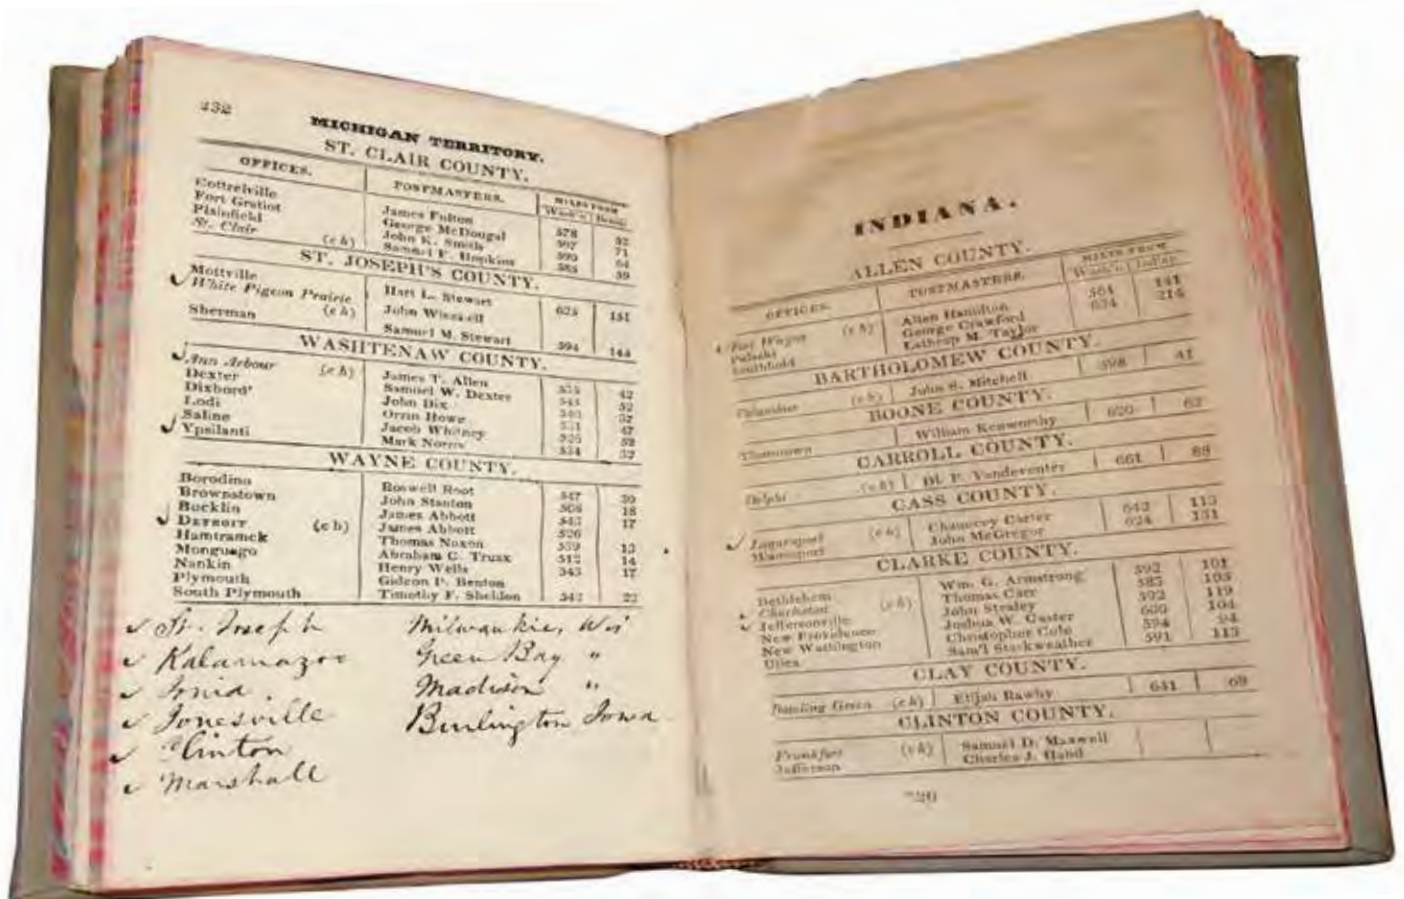 232
MICHIGAN TERRITORY.
ST. CLAIR COUNTY.
OFFICES. POSTMASTERS. MILES FROM
Wash'n
Cottrelville James Fulton 578 52
Fort Gratiot George McDougal 597 71
Plainfield John K. Smith 590 64
St. Clair (c h) Samuel F. Hopkins 585 59
ST. JOSEPH'S COUNTY.
Mottville Hart L. Stewart
White Pigeon Prairie (c h) John Winchell 625 151
Sherman Samuel M. Stewart 594 144
WASHTENAW COUNTY.
Ann Arbour (c h) James T. Allen 42
Dexter Samuel W. Dexter 52
Dixboro' John Dix
Lodi Orrin Howe 47
Saline Jacob Whitney
Ypsilanti Mark Norris 534
WAYNE COUNTY.
Borodino Roswell Root 547 30
Brownstown John Stanton 508 18
Bucklin James Abbott 543 17
DETROIT (c h) James Abbott 526
Hamtramck Thomas Noxon 539 13
Monguago Abraham C. Truax 512 14
Nankin Henry Wells 543 17
Plymouth Gideon P. Benton
South Plymouth Timothy F. Sheldon
St. Joseph Milwaukie, Wis
Kalamazoo Green Bay "
Ionia. Madison "
Jonesville Burlington Iowa
Clinton
Marshall
INDIANA.
ALLEN COUNTY.
OFFICES. POSTMASTERS. MILES FROM
Wash'n Ind'ap.
Fort Wayne (c h) Allen Hamilton 561 141
George Crawford 634 214
Lathrop M. Taylor
BARTHOLOMEW COUNTY.
Columbus (c h) John S. Mitchell 598 41
BOONE COUNTY.
Thorntown William Kenworthy 620 62
CARROLL COUNTY.
Delphi (c h) Vandeventer 661 88
CASS COUNTY.
Logansport (c h) Chauncey Carter 642 113
John McGregor 624 131
CLARKE COUNTY.
Bethlehem Wm. G. Armstrong 592 101
Charleston (c h) Thomas Carr 585 105
Jeffersonville John Stealey 592 119
New Providence Joshua W. Custer 600 104
New Washington Christopher Cole 594 94
Utica Sam'l Starkweather 591 113
CLAY COUNTY.
Bowling Green (c h) Elijah Rawley 641 69
CLINTON COUNTY.
Frankfort (c h) Samuel D. Maxwell
Jefferson Charles J. Hand
*20